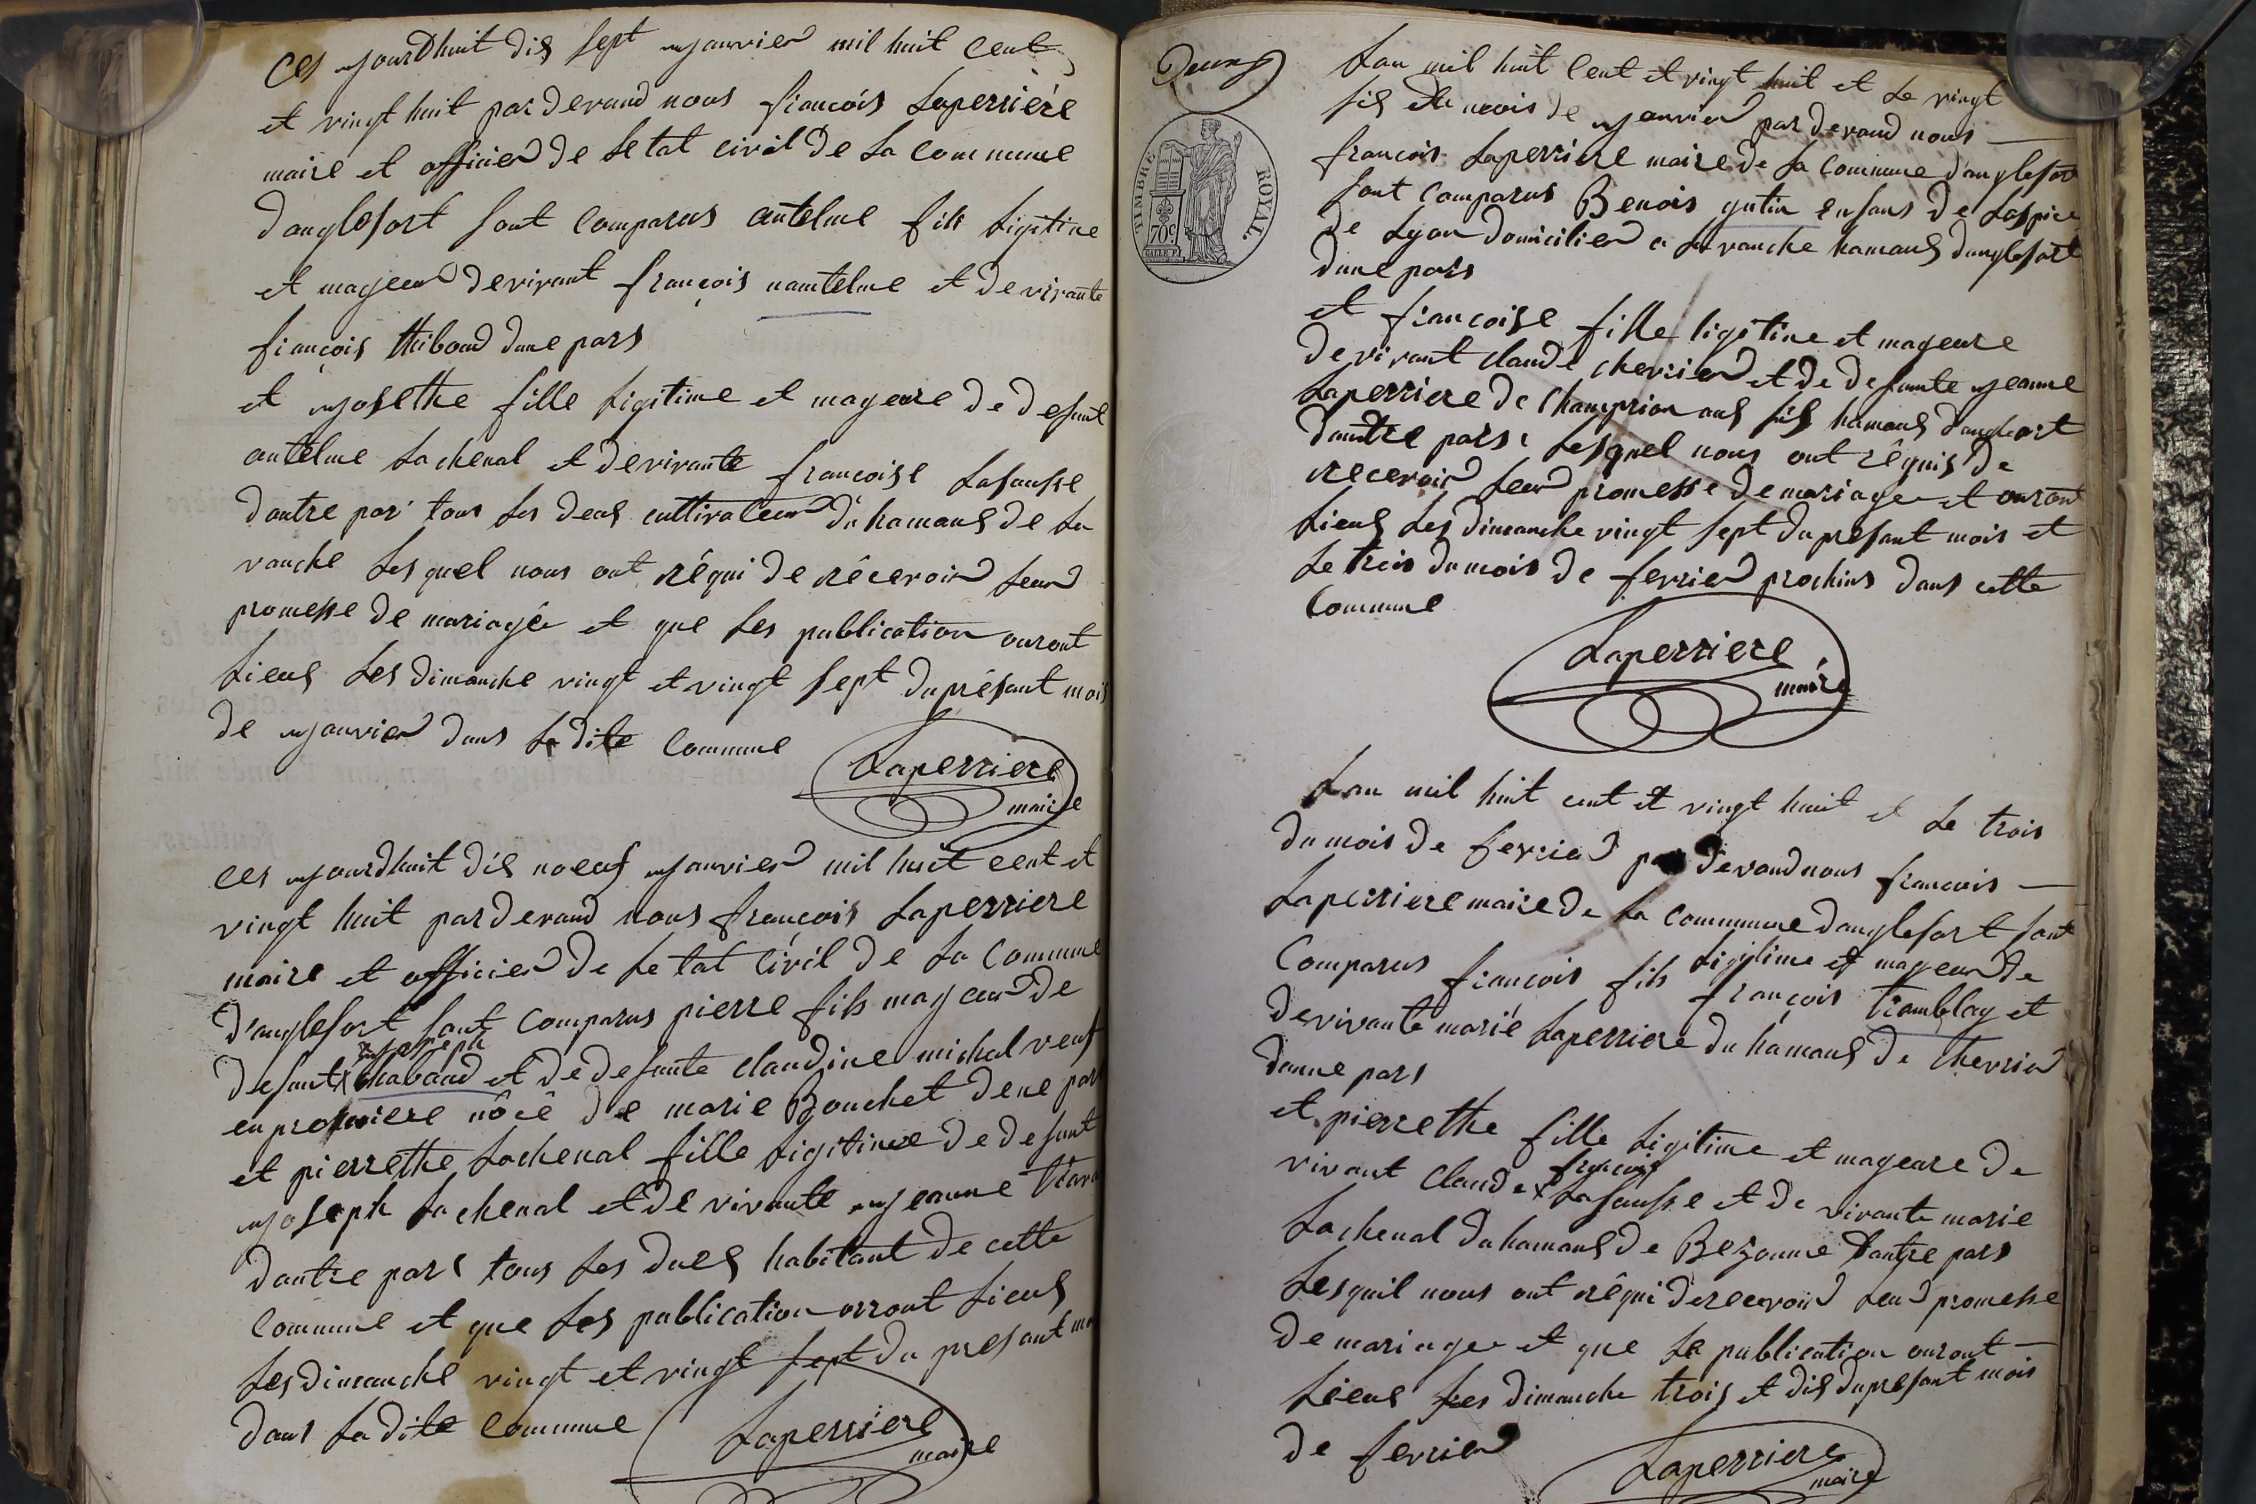 Ces njourdhuit dis sept njanvier mil huit cent
et vingt huit par devand nous françois Laperriére
maire et officier de letat civil de la commune
danglefort sont comparus antelme fils ligitime
et mageur de vivant françois nantelme et de vivante
françois thiboud dune pars
et njosethe fille ligitime et mageure de defunt
antelme Lachenal et de vivante francoise Lasausse
dautre par tous les deus cultivateur du hamaus de La
vanche Lesquel nous ont réqui de récevoir leur
promesse de mariagé et que les publication ouront
Lieus Les dimanche vingt et vingt sept du présant mois
de njanvier dans La dite commune
Laperriere
maire
ces njourdhuit dis noeuf njanvier mil huit cent et
vingt huit par devand nous françois Laperriere
maire et officier de letat civil de La commune
d'anglefort sont comparus pierre fils mageur de
njoseph
defunt x chaboud et de defunte claudine michal veuf
en premiere nôcê de marie Bouchet dune par
et pierrethe Lachenal fille ligitimee de defunt
njoseph Lachenal et de vivante njeanne
dautre pars tous les dues habitant de cette
commune et que les publication orront Lieus
Les dimanche vingt et vingt sept du presant
dans La dite commune
Laperriere
maire
TIMBRE ROYAL
70c
Lan mil huit cent et vingt huit et Le vingt
sis du mois de njanvier par devand nous
francois Laperriere maire de La commune danglefort
sont comparus Benois gutin enfans de Lospice
de Lyon domicilier a La vanche hamaus danglefort
dune pars
et francoise fille ligitime et mageure
de vivant claude chevrier et de defunte njeanne
Laperriere de champrion aus sis hamaus danglefort
dautre pars Lesquel nous ont réquis de
recevoir leur promesse de mariage et ouront
Lieus Les dimanche vingt sept du presant mois et
Le trois du mois de fevrier prochins dans cette
commune
Laperriere
maire
Lan mil huit cent et vingt huit et Le trois
du mois de fevrier par devand nous francois
Laperriere maire de La commune danglefort sont
comparus francois fils Ligitime et mageur de
françois tramblay et
de vivante marié Laperriere du hamaus de chevrier
dunne pars
et pierrethe fille Ligitime et mageure de
françois
vivant claude x Lasausse et de vivante marie
Lachenal du hamaus de Bezonne dautre pars
Lesquil nous ont réqui de recevoir leur promesse
de mariage et que La publication ouront
Lieus Les dimanche trois et dis du presant mois
de fevrier
Laperriere
maire